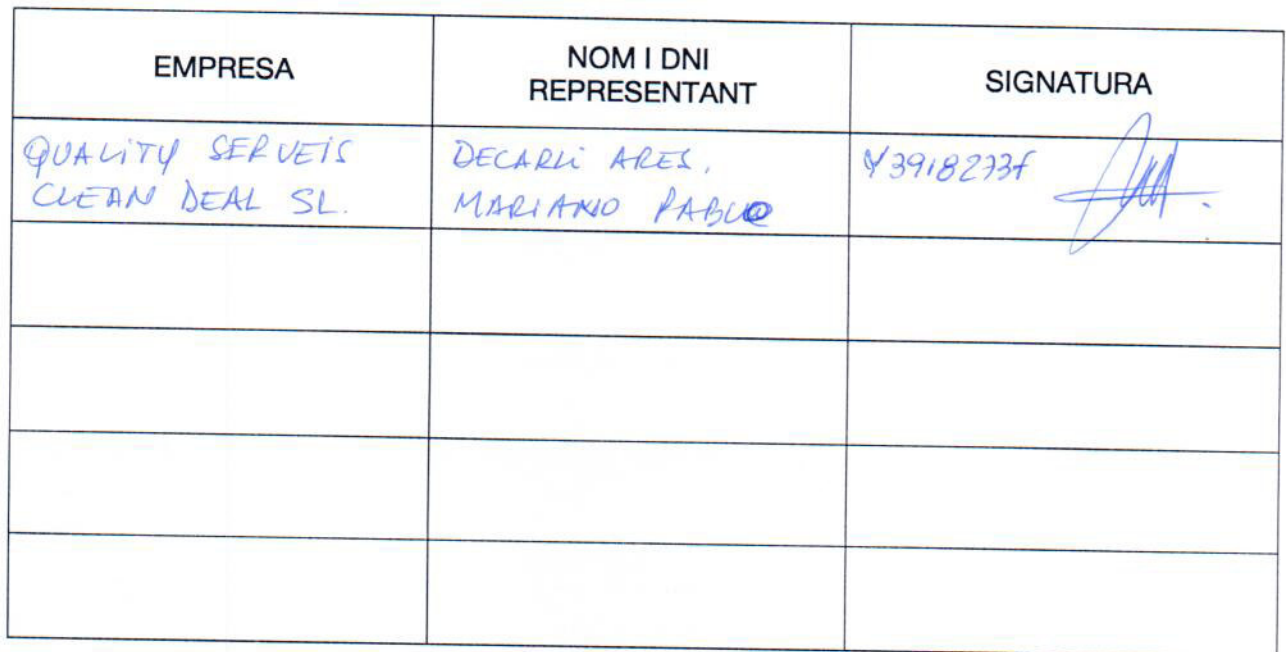 EMPRESA
NOM I DNI
REPRESENTANT
SIGNATURA
QUALITY SERVEIS
CLEAN DEAL SL.
DECARLI ARES,
MARIANO PABLO
Y3918273f